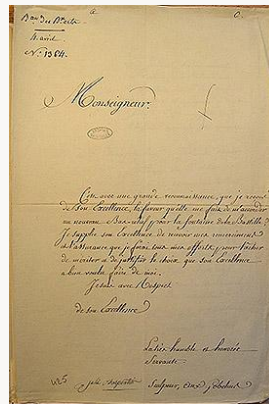 Bau. des Bx. arts
4 avril
N°. 1364.
Monseigneur.
C'est avec une grande reconnaissance, que je reçois
de Son Excellence, la faveur qu'elle me fais de m'accorder
un nouveau Bas-relief pour la fontaine de la Bastille.
Je supplie son Excellence de recevoir mes remerciments
et l'assurance que je ferai tous mes efforts pour tâcher
de mériter et de justifier le choix que son Excellence
a bien voulu faire de moi.
Je suis avec Respect
de son Excellence
La très humble et
Servante
julie Charpentier